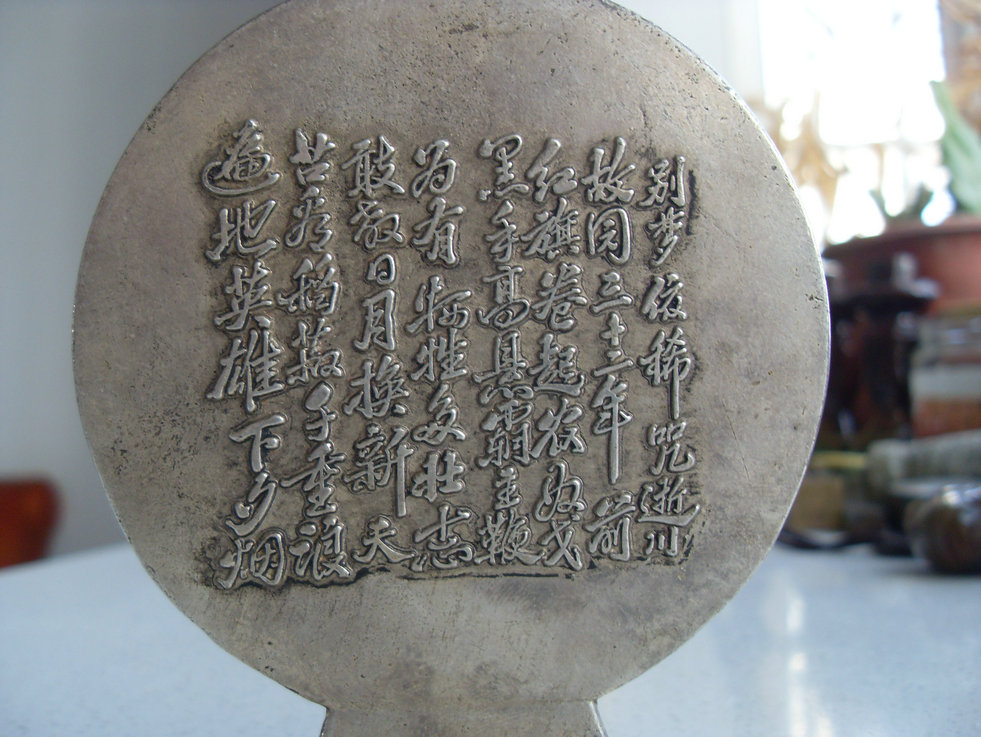 别梦依稀咒逝川
故园三十二年前
红旗卷起农奴戟
黑手高悬霸主鞭
为有牺牲多壮志
敢教日月换新天
喜看稻菽千重浪
遍地英雄下夕烟